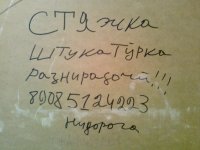 СТЯжка
ШТУкаТУРка
Разнирадочи!!!
89085124223
нидорога